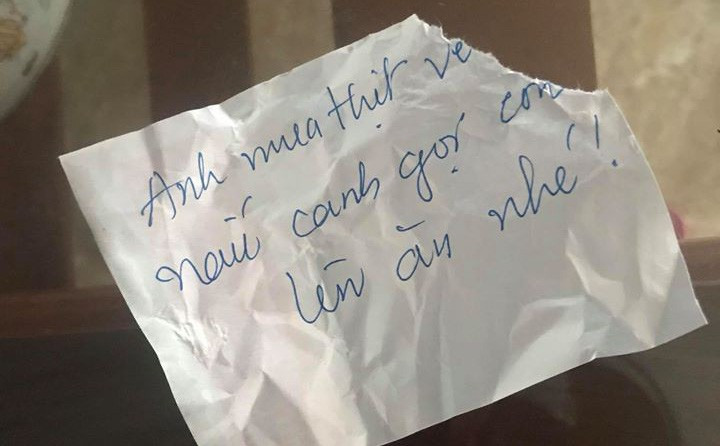 Anh mua thịt về
nấu canh gọi con
lên ăn nhé!